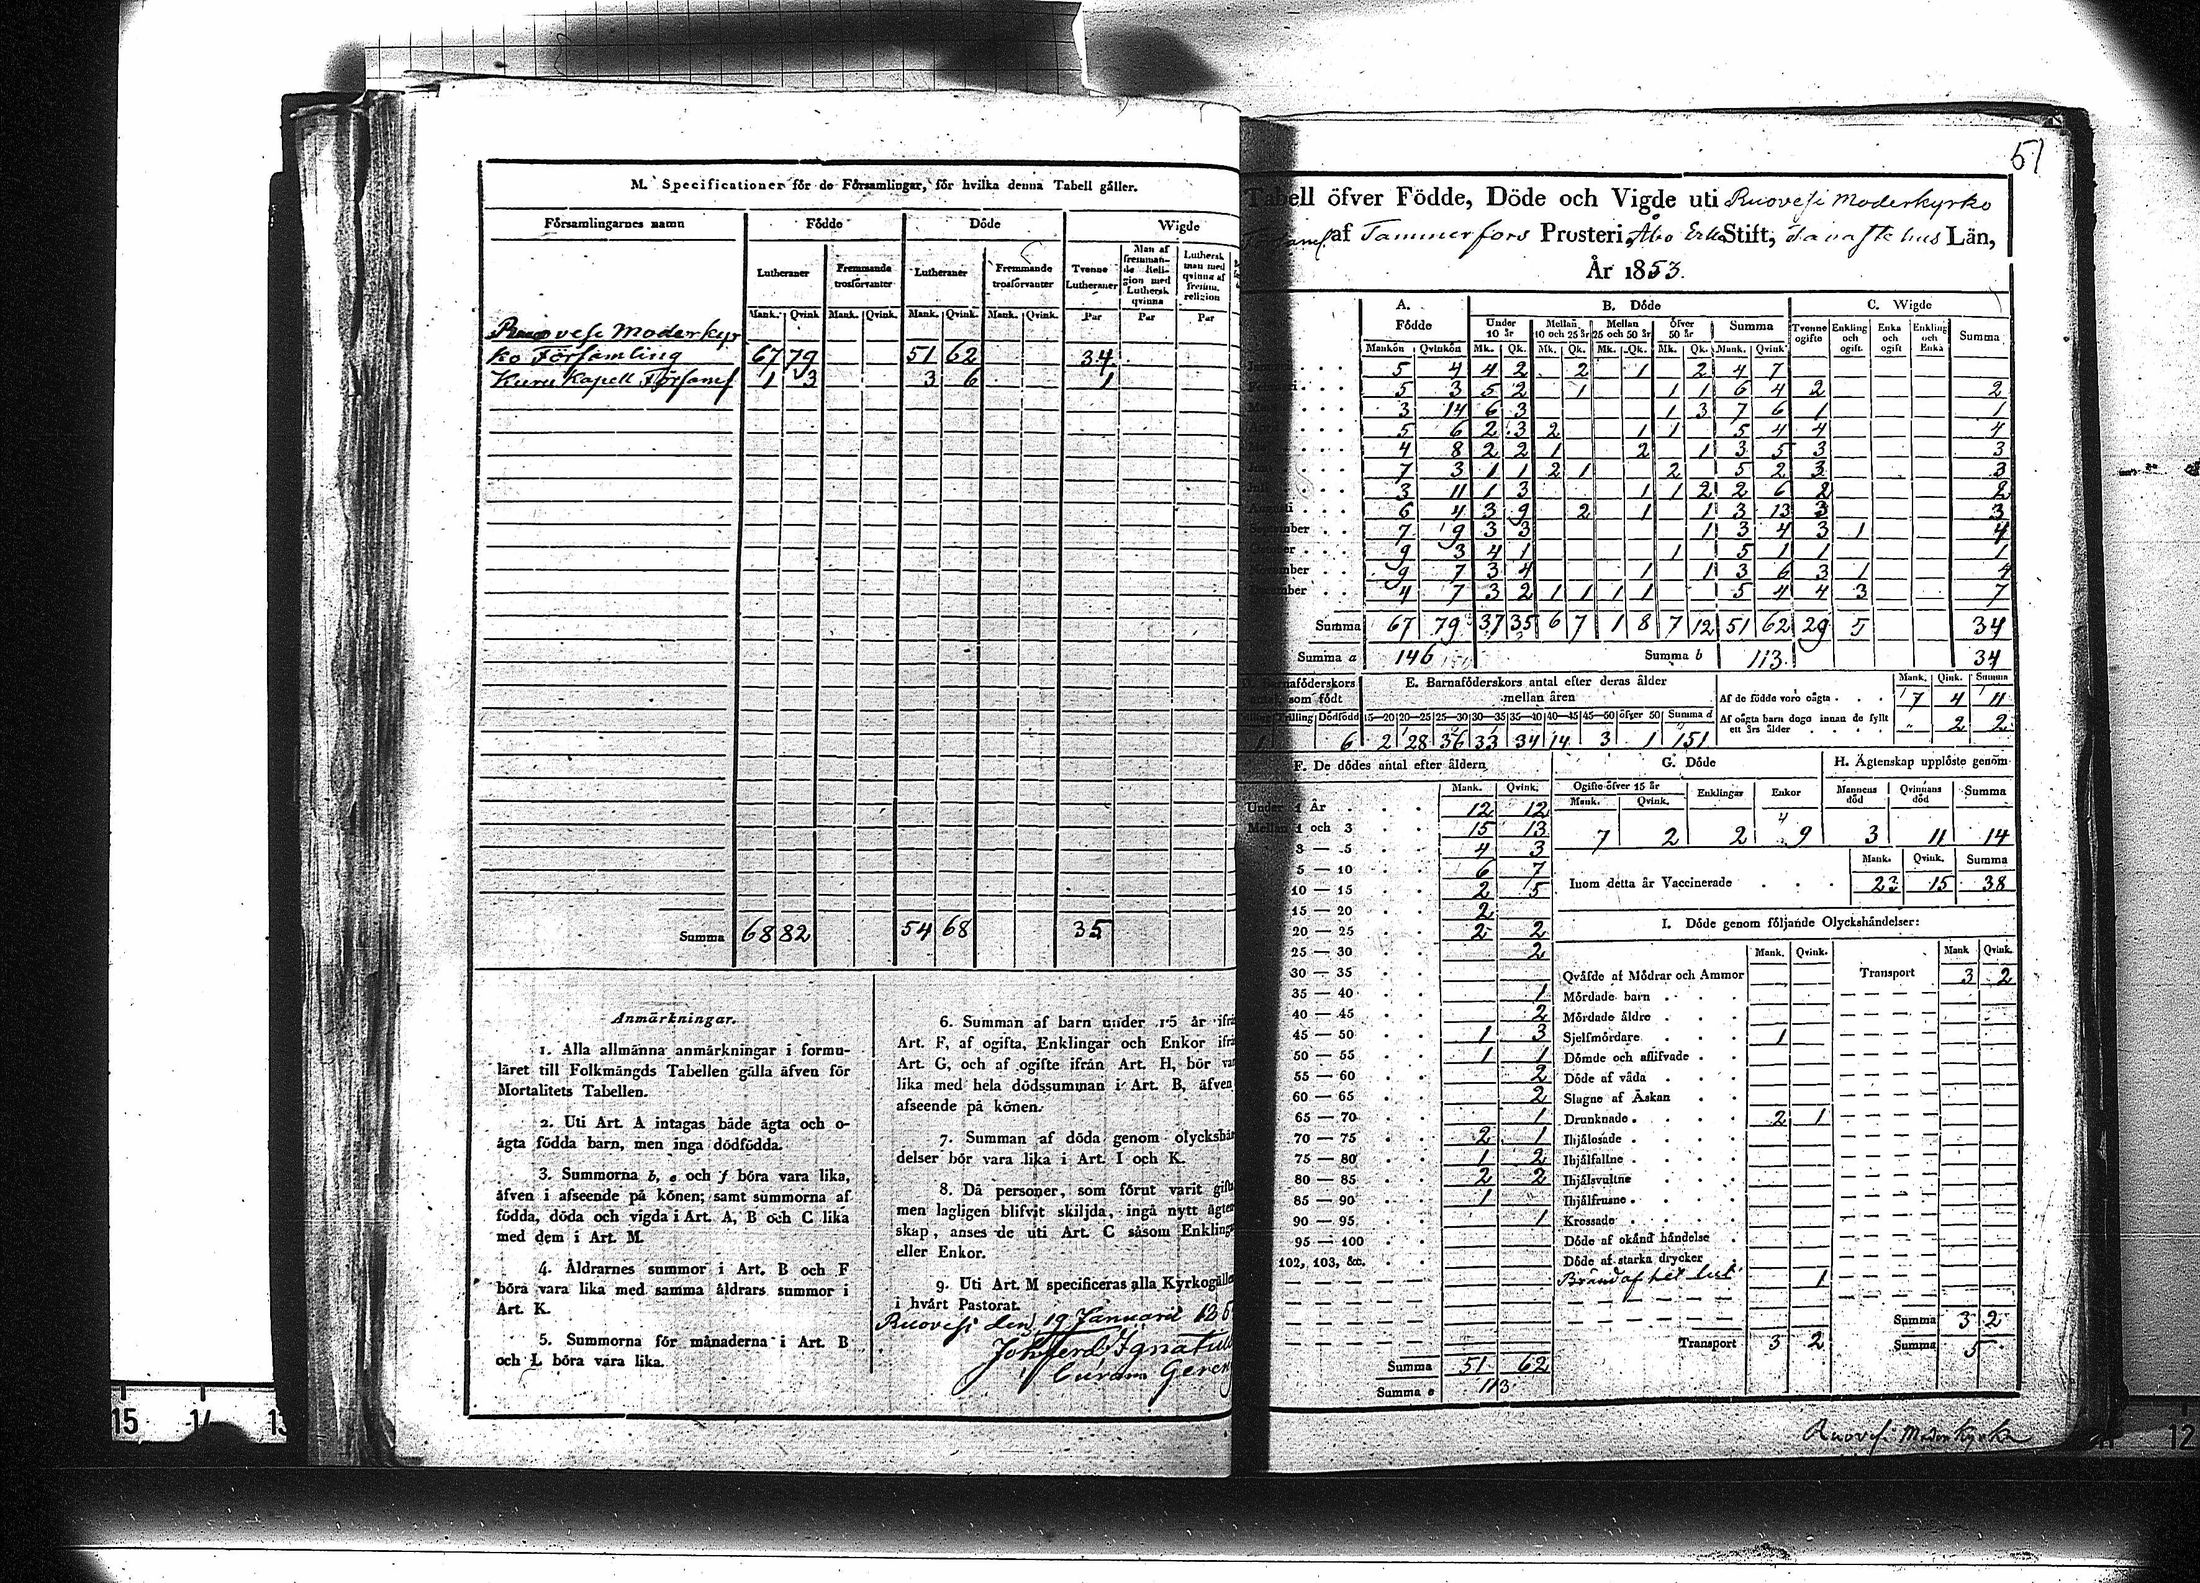 M. Specificationer för de Församlingar, för hvilka denna Tabell gäller.
Församlingarnes namn Födde Döde Wigde
Lutheraner Fremmande trosförvanter Lutheraner Fremmande trosförvanter Tvenne Lutheraner Man af fremmande Religion med Luthersk qvinna Luthersk man med qvinna af fremm. religion
Mank. Qvink Mank. Qvink. Mank. Qvink. Mank. Qvink. Par Par Par
Ruovesi Moderkyr
ko Församling 67 79 51 62 34
Kuru Kapell Församl 1 3 3 6 1
Summa 68 82 54 68 35
Anmärkningar.
1. Alla allmänna anmärkningar i formu-
läret till Folkmängds Tabellen gälla äfven för
Mortalitets Tabellen.
2. Uti Art. A intagas både ägta och o-
ägta födda barn, men inga dödfödda.
3. Summorna b, e och f böra vara lika,
äfven i afseende på könen; samt summorna af
födda, döda och vigda i Art. A, B och C lika
med dem i Art. M.
4. Åldrarnes summor i Art. B och F
böra vara lika med samma åldrars summor i
Art. K.
5. Summorna för månaderna i Art. B
och L böra vara lika.
6. Summan af barn under 15 år ifrå
Art. F, af ogifta, Enklingar och Enkor ifrå
Art. G, och af ogifte ifrån Art. H, bör va
lika med hela dödssumman i Art. B, äfven
afseende på könen.
7. Summan af döda genom olyckshän
delser bör vara lika i Art. I och K.
8. Då personer, som förut varit gifta
men lagligen blifvit skiljda, ingå nytt ägten
skap, anses de uti Art. C såsom Enklinga
eller Enkor.
9. Uti Art. M specificeras alla Kyrkogälle
i hvart Pastorat.
Ruovesi den 19 Januarii 185
Joh Ferd Ignatius
Curam Geren
51
Tabell öfver Födde, Döde och Vigde uti Ruovesi Moderkyrko
af Tammerfors Prosteri, Åbo Erke Stift, Tavastehus Län,
År 1853.
A. B. Döde C. Wigde
Födde Under 10 år Mellan 10 och 25 år Mellan 25 och 50 år Öfver 50 år Summa Tvenne ogifte Enkling och ogift. Enka och ogift Enkling och Enka Summa
Mankön Qvinkön Mk. Qk. Mk. Qk. Mk. Qk. Mk. Qk. Mank. Qvink
5 4 4 2 2 1 2 4 7
5 3 5 2 1 1 1 6 4 2 2
3 14 6 3 1 3 7 6 1 1
5 6 2 3 2 1 1 5 4 4 4
4 8 2 2 1 2 1 3 5 3 3
Juni 7 3 1 1 2 1 2 5 2 3 3
Juli 3 11 1 3 1 1 2 2 6 2 2
Augusti 6 4 3 9 2 1 1 3 13 3 3
September 7 9 3 3 1 3 4 3 1 4
October 9 3 4 1 1 5 1 1 1
November 9 7 3 4 1 1 3 6 3 1 4
December 4 7 3 2 1 1 1 1 5 4 4 3 7
Summa 67 79 37 35 6 7 1 8 7 12 51 62 29 5 34
Summa a 146 Summa b 113 34
D. Barnaföderskors antal som födt
E. Barnaföderskors antal efter deras ålder mellan åren
Tvilling Trilling Dödfödd 15—20 20—25 25—30 30—35 35—40 40—45 45—50 öfver 50 Summa d
1 6 2 28 36 33 34 14 3 1 151
Mank. Qink. Summa
Af de födde voro oägta 7 4 11
Af oägta barn dogo innan de fyllt ett års ålder 2 2
F. De dödes antal efter åldern
Mank. Qvink.
Under 1 År 12 12
Mellan 1 och 3 15 13
3 — 5 4 3
5 — 10 6 7
10 — 15 2 5
15 — 20 2
20 — 25 2 2
25 — 30 2
30 — 35
35 — 40 1
40 — 45 2
45 — 50 1 3
50 — 55 1 1
55 — 60 2
60 — 65 2
65 — 70 1
70 — 75 2 1
75 — 80 1 2
80 — 85 2 2
85 — 90 1
90 — 95 1
95 — 100
102, 103, &c.
Summa 51 62
Summa e 113
G. Döde
Ogifte öfver 15 år Enklingar Enkor
Mank. Qvink.
7 2 2 9
H. Ägtenskap upplöste genom
Mannens död Qvinnans död Summa
3 11 14
Mank. Qvink. Summa
Inom detta år Vaccinerade 23 15 38
I. Döde genom följande Olyckshändelser:
Mank. Qvink. Mank Qvink.
Qväfde af Mödrar och Ammor Transport 3 2
Mördade barn
Mördade äldre
Sjelfmördare 1
Dömde och aflifvade
Döde af våda
Slagne af Åskan
Drunknade 2 1
Ihjälosade
Ihjälfallne
Ihjälsvultne
Ihjälfrusne
Krossade
Döde af okänd händelse
Döde af starka drycker
Bränd af het lut 1
Summa 3 2
Transport 3 2 Summa 5
Ruovesi Moderkyrko